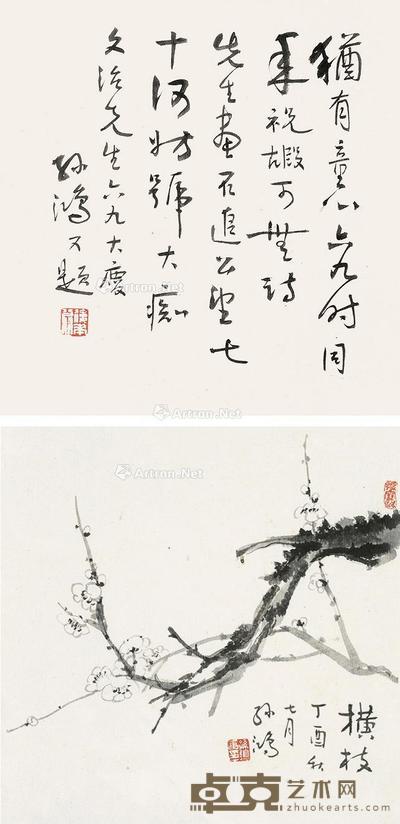 猶有童心六九时同
来祝嘏可無詩
先生畫石追公望七
十何妨號大痴
文治先生六九大慶
孫鴻又題
雅昌 Artron.Net
Artron.Net
Artron.Net
橫枝
丁酉秋
七月
孫鴻
卓克艺术网
www.zhuokearts.com